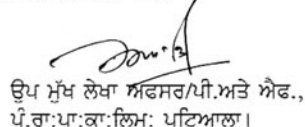 ਉਪ ਮੁੱਖ ਲੇਖਾ ਅਫਸਰ/ਪੀ.ਅਤੇ ਐਫ.,
ਪੰ.ਰਾ:ਪਾ:ਕਾ:ਲਿਮ: ਪਟਿਆਲਾ।